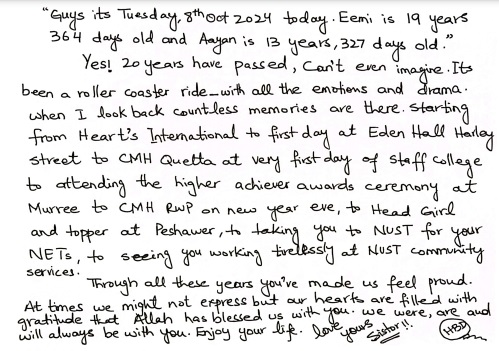 "Guys its Tuesday, 8th Oct 2024 today. Eemi is 19 years
364 days old and Aayan is 13 years, 327 days old."
Yes! 20 years have passed, Can't even imagine. Its
been a roller coaster ride _ with all the emotions and drama.
when I look back countless memories are there. starting
from Heart's International to first day at Eden Hall Harley
street to CMH Quetta at very first day of staff college
to attending the higher achiever awards ceremony at
Murree to CMH RWP on new year eve, to Head Girl
and topper at Peshawer, to taking you to NUST for your
NETs, to seeing you working tirelessly at NUST community
services.
Through all these years you've made us feel proud.
At times we might not express but our hearts are filled with
gratitude that Allah has blessed us with you. we were, are and
will always be with you. Enjoy your life. love yours
HBD